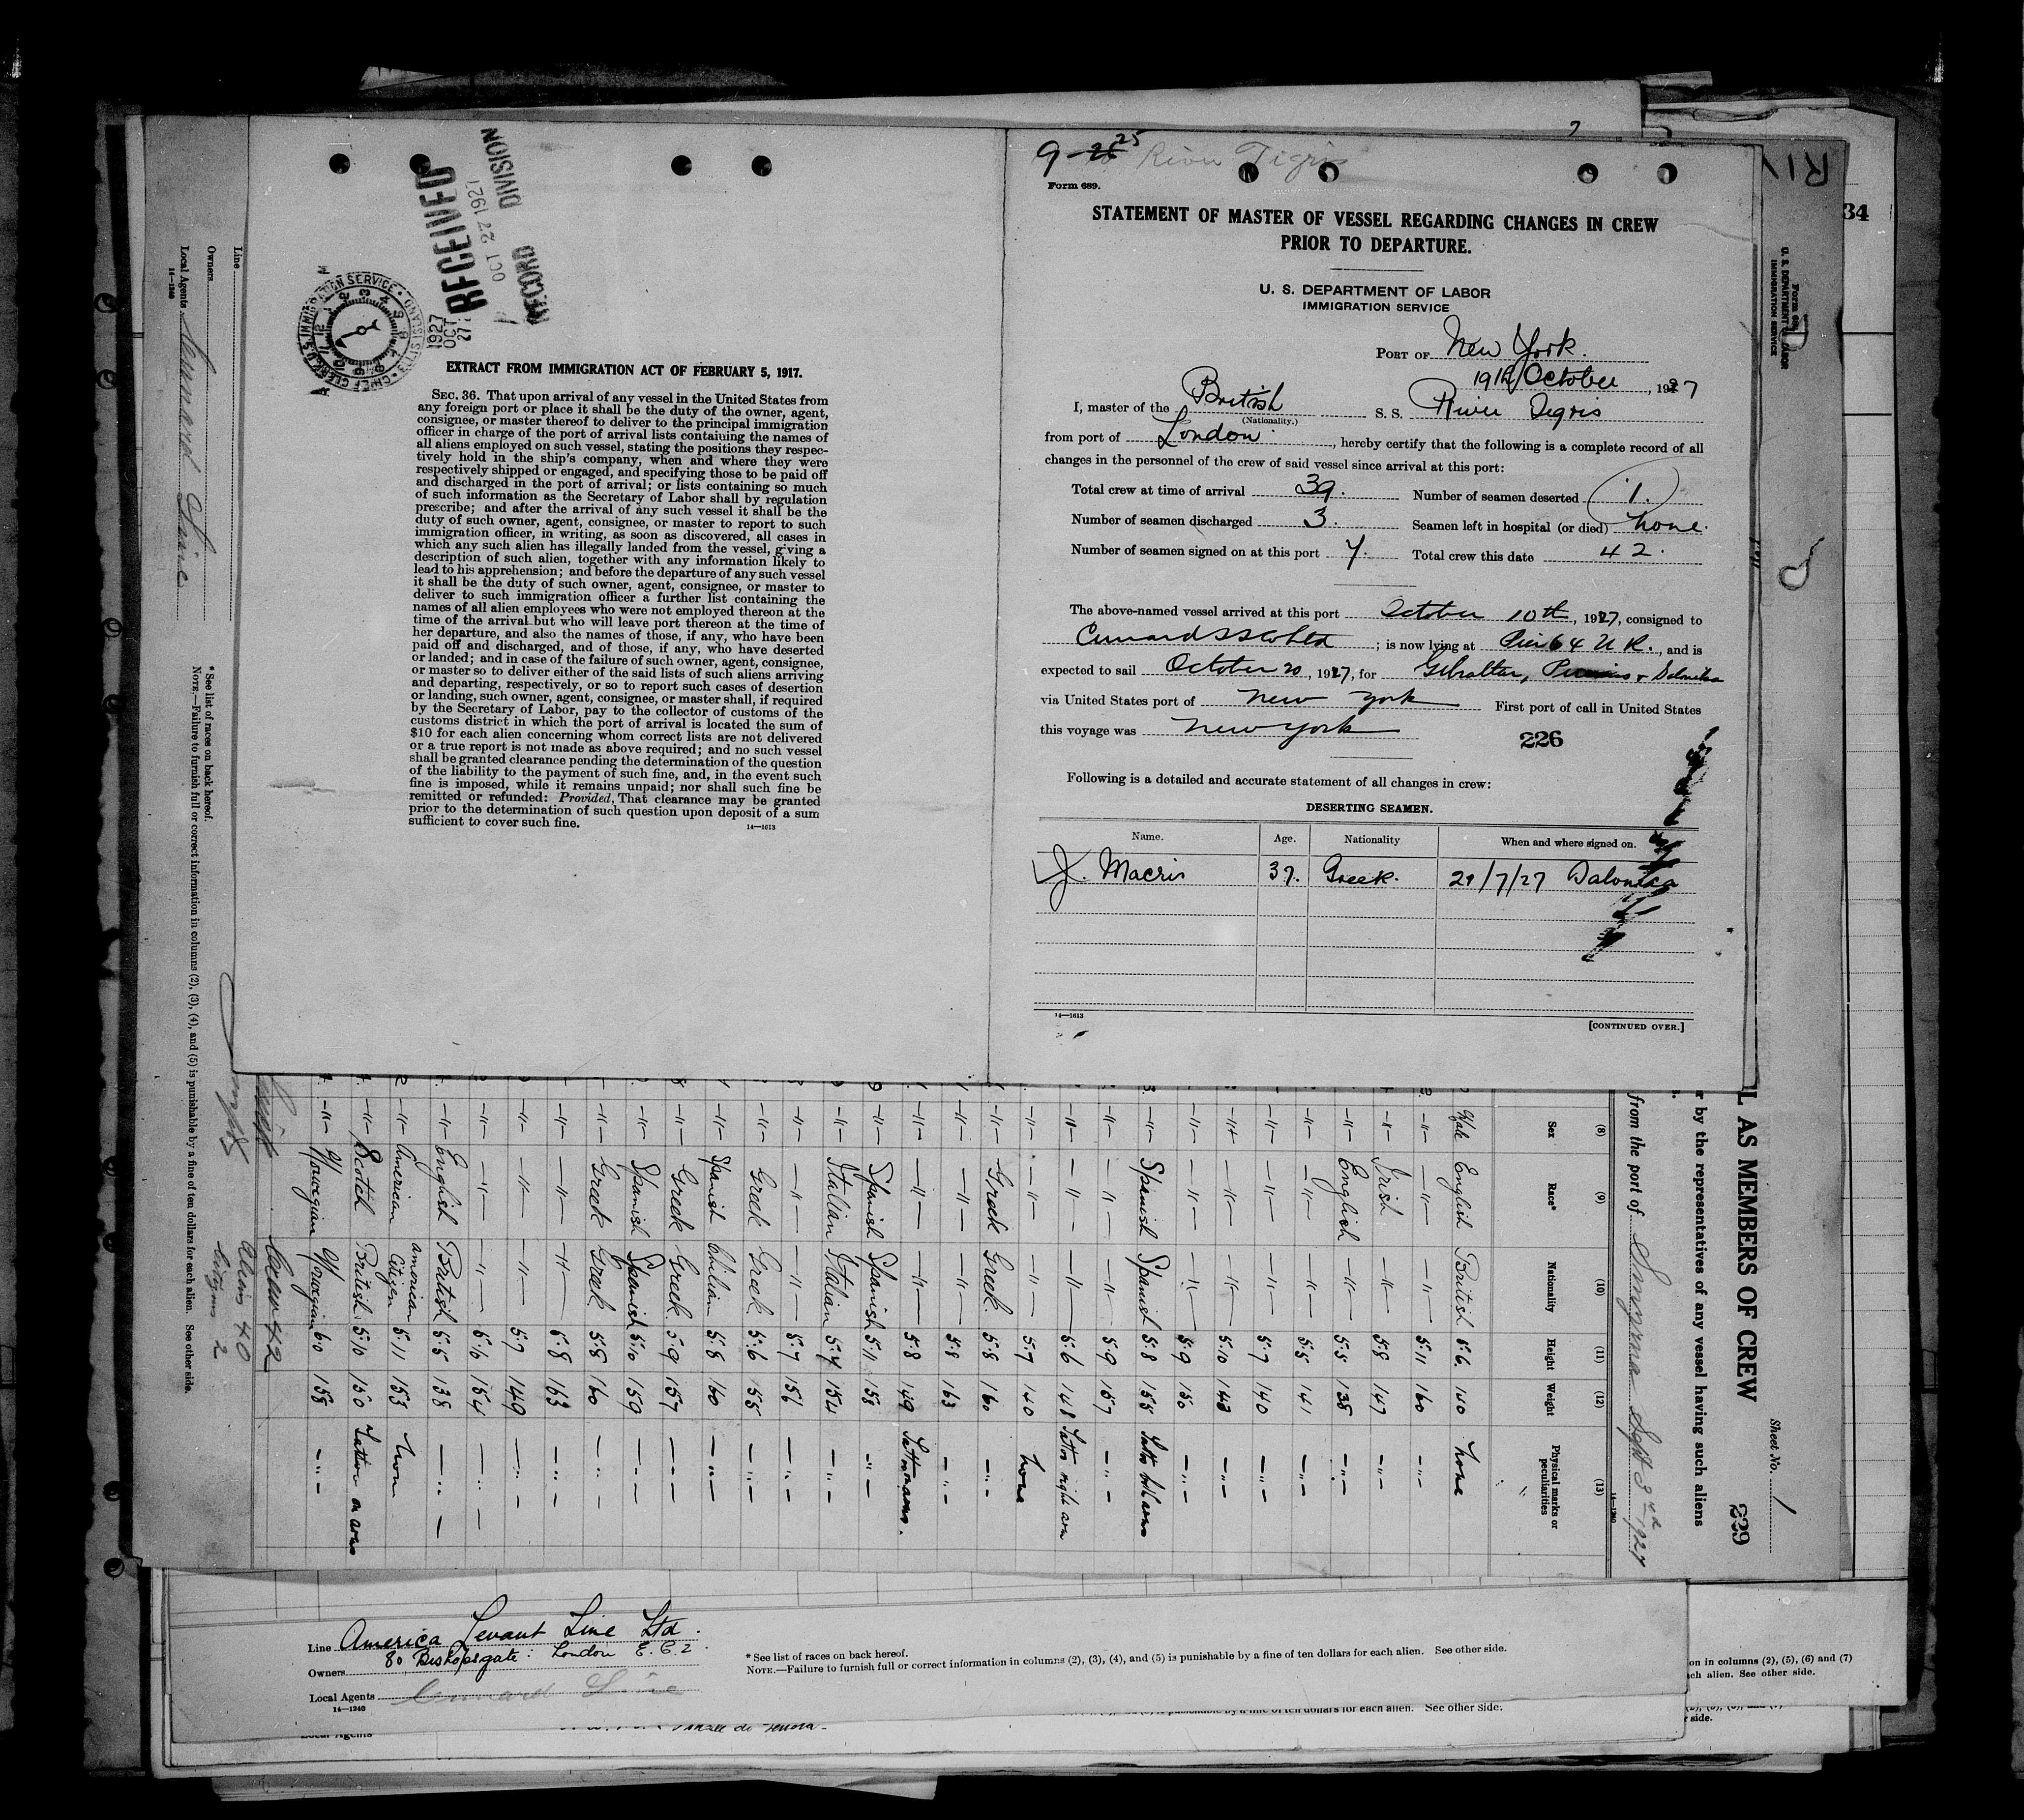 RECEIVED
OCT 27 1927
RECORD DIVISION
1927
OCT
27
U.S. IMMIGRATION SERVICE
CHIEF CLERK
EXTRACT FROM IMMIGRATION ACT OF FEBRUARY 5, 1917.
SEC. 36. That upon arrival of any vessel in the United States from
any foreign port or place it shall be the duty of the owner, agent,
consignee, or master thereof to deliver to the principal immigration
officer in charge of the port of arrival lists containing the names of
all aliens employed on such vessel, stating the positions they respec-
tively hold in the ship's company, when and where they were
respectively shipped or engaged, and specifying those to be paid off
and discharged in the port of arrival; or lists containing so much
of such information as the Secretary of Labor shall by regulation
prescribe; and after the arrival of any such vessel it shall be the
duty of such owner, agent, consignee, or master to report to such
immigration officer, in writing, as soon as discovered, all cases in
which any such alien has illegally landed from the vessel, giving a
description of such alien, together with any information likely to
lead to his apprehension; and before the departure of any such vessel
it shall be the duty of such owner, agent, consignee, or master to
deliver to such immigration officer a further list containing the
names of all alien employees who were not employed thereon at the
time of the arrival but who will leave port thereon at the time of
her departure, and also the names of those, if any, who have been
paid off and discharged, and of those, if any, who have deserted
or landed; and in case of the failure of such owner, agent, consignee,
or master so to deliver either of the said lists of such aliens arriving
and departing, respectively, or so to report such cases of desertion
or landing, such owner, agent, consignee, or master shall, if required
by the Secretary of Labor, pay to the collector of customs of the
customs district in which the port of arrival is located the sum of
$10 for each alien concerning whom correct lists are not delivered
or a true report is not made as above required; and no such vessel
shall be granted clearance pending the determination of the question
of the liability to the payment of such fine, and, in the event such
fine is imposed, while it remains unpaid; nor shall such fine be
remitted or refunded: Provided, That clearance may be granted
prior to the determination of such question upon deposit of a sum
sufficient to cover such fine.
14—1613
9-25 River Tigris
Form 689.
STATEMENT OF MASTER OF VESSEL REGARDING CHANGES IN CREW
PRIOR TO DEPARTURE.
U. S. DEPARTMENT OF LABOR
IMMIGRATION SERVICE
PORT OF New York.
19th October, 1927
I, master of the British S. S. River Tigris
(Nationality.)
from port of London, hereby certify that the following is a complete record of all
changes in the personnel of the crew of said vessel since arrival at this port:
Total crew at time of arrival 39. Number of seamen deserted 1.
Number of seamen discharged 3. Seamen left in hospital (or died) none.
Number of seamen signed on at this port 7. Total crew this date 42.
The above-named vessel arrived at this port October 10th, 1927, consigned to
Cunard SS Co Ltd; is now lying at Pier 64 N R., and is
expected to sail October 20, 1927, for Gibraltar, Piraeus + Salonika
via United States port of New York First port of call in United States
this voyage was New York
226
Following is a detailed and accurate statement of all changes in crew:
DESERTING SEAMEN.
Name. Age. Nationality When and where signed on.
J. Macris 37. Greek. 29/7/27 Salonica
14—1613
[CONTINUED OVER.]
Line
Owners
Local Agents Cunard Line
14—1240
* See list of races on back hereof.
NOTE.—Failure to furnish full or correct information in columns (2), (3), (4), and (5) is punishable by a fine of ten dollars for each alien. See other side.
Crew 42
Aliens 40
Citizens 2
U. S. DEPARTMENT OF LABOR
IMMIGRATION SERVICE
34
Sheet No. 1
229
L AS MEMBERS OF CREW
r by the representatives of any vessel having such aliens
from the port of Smyrna Sept 3rd 1927
14—1240
(8) (9) (10) (11) (12) (13)
Sex Race* Nationality Height Weight Physical marks or peculiarities
Male English British 5.6. 140 none
—"— —"— —"— 5.11 160 —"—
—"— Irish —"— 5.8 147 —"—
—"— English —"— 5.5 135 —"—
—"— —"— —"— 5.5 141 —"—
—"— —"— —"— 5.7 140 —"—
—"— —"— —"— 5.10 143 —"—
—"— —"— —"— 5.9 150 —"—
—"— Spanish Spanish 5.8 155 Tatto both arms
—"— —"— —"— 5.9 157 —"—
—"— —"— —"— 5.6 148 Tatto right arm
—"— —"— —"— 5.7 140 none
—"— Greek Greek. 5.8 160 —"—
—"— —"— —"— 5.8 163 —"—
—"— —"— —"— 5.8 149 Tatto on arms.
—"— Spanish Spanish 5.11 158 —"—
—"— Italian Italian 5.4 154 —"—
—"— —"— —"— 5.7 156 —"—
—"— Greek Greek. 5.6 155 —"—
—"— Spanish Chilian 5.8 160 —"—
—"— Greek Greek. 5.9 157 —"—
—"— Spanish Spanish 5.10 159 —"—
—"— Greek Greek 5.8 160 —"—
—"— —"— —"— 5.8 163 —"—
—"— —"— —"— 5.7 149 —"—
—"— —"— —"— 5.6 154 —"—
—"— English British 5.5 138 —"—
—"— American American Citizen 5.11 153 none
—"— Scotch British 5.10 150 Tattoo on arms
—"— Norwegian Norwegian 6.0 158 —"—
Line America Levant Line Ltd.
Owners 80 Bishopsgate: London E.C.2.
Local Agents Cunard Line
14—1240
* See list of races on back hereof.
NOTE.—Failure to furnish full or correct information in columns (2), (3), (4), and (5) is punishable by a fine of ten dollars for each alien. See other side.
on in columns (2), (5), (6) and (7)
ach alien. See other side.
ten dollars for each alien. See other side.
side.
Local Agents